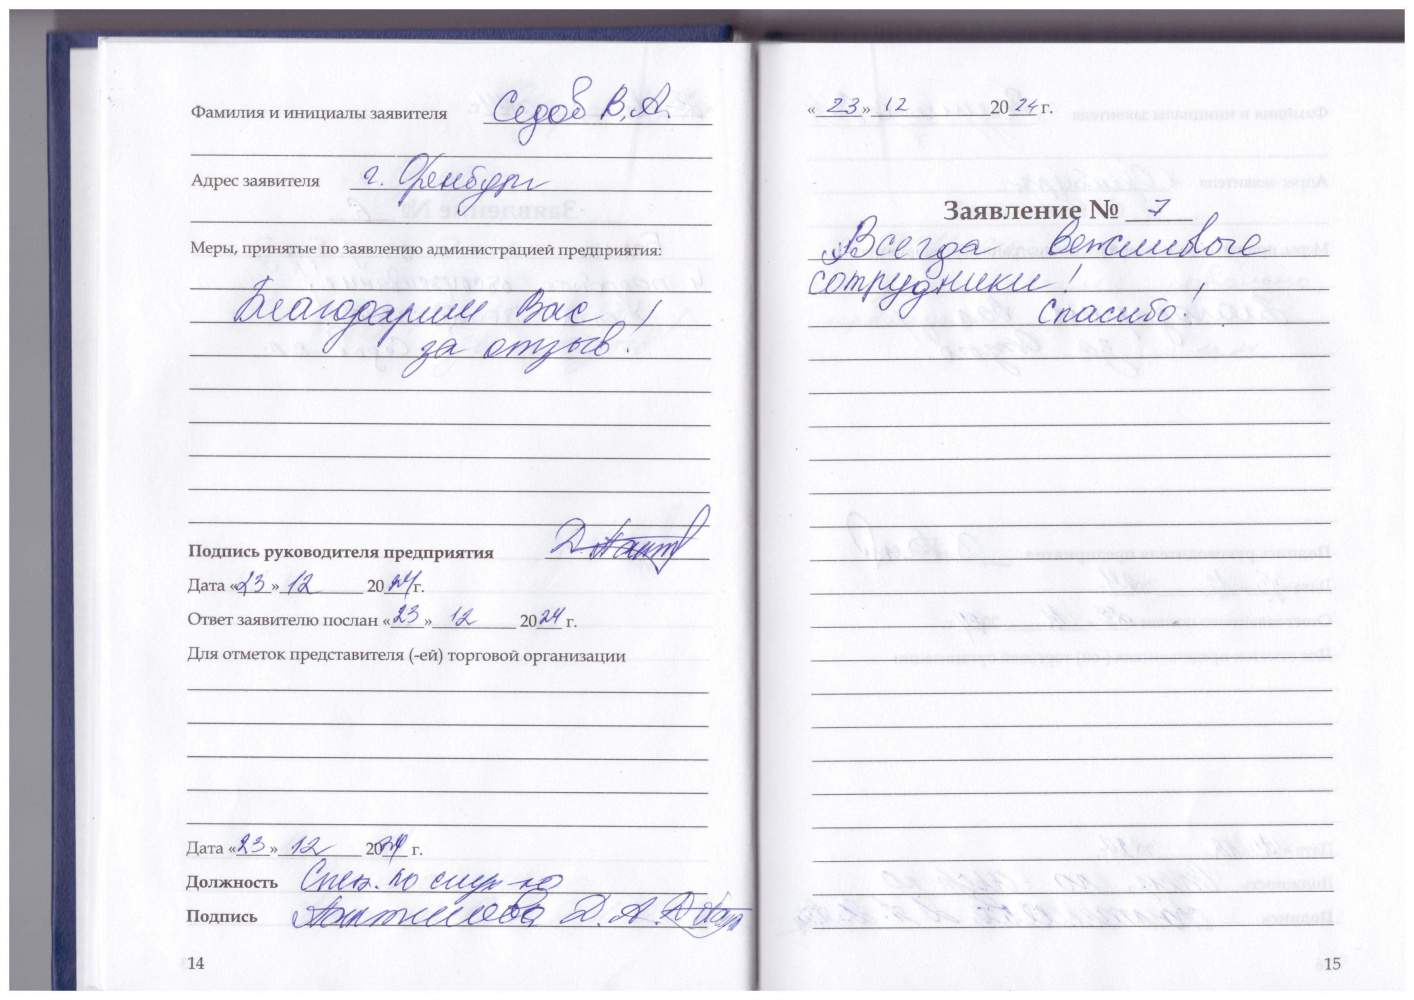 Фамилия и инициалы заявителя Седов В.А.
Адрес заявителя г. Оренбург
Меры, принятые по заявлению администрацией предприятия:
Благодарим Вас
за отзыв!
Подпись руководителя предприятия
Дата «23» 12 2024 г.
Ответ заявителю послан «23» 12 2024 г.
Для отметок представителя (-ей) торговой организации
Дата «23» 12 2024 г.
Должность Спец. по
Подпись Д. А.
14
«23» 12 2024 г.
Заявление № 7
Всегда вежливые
сотрудники!
Спасибо!
15